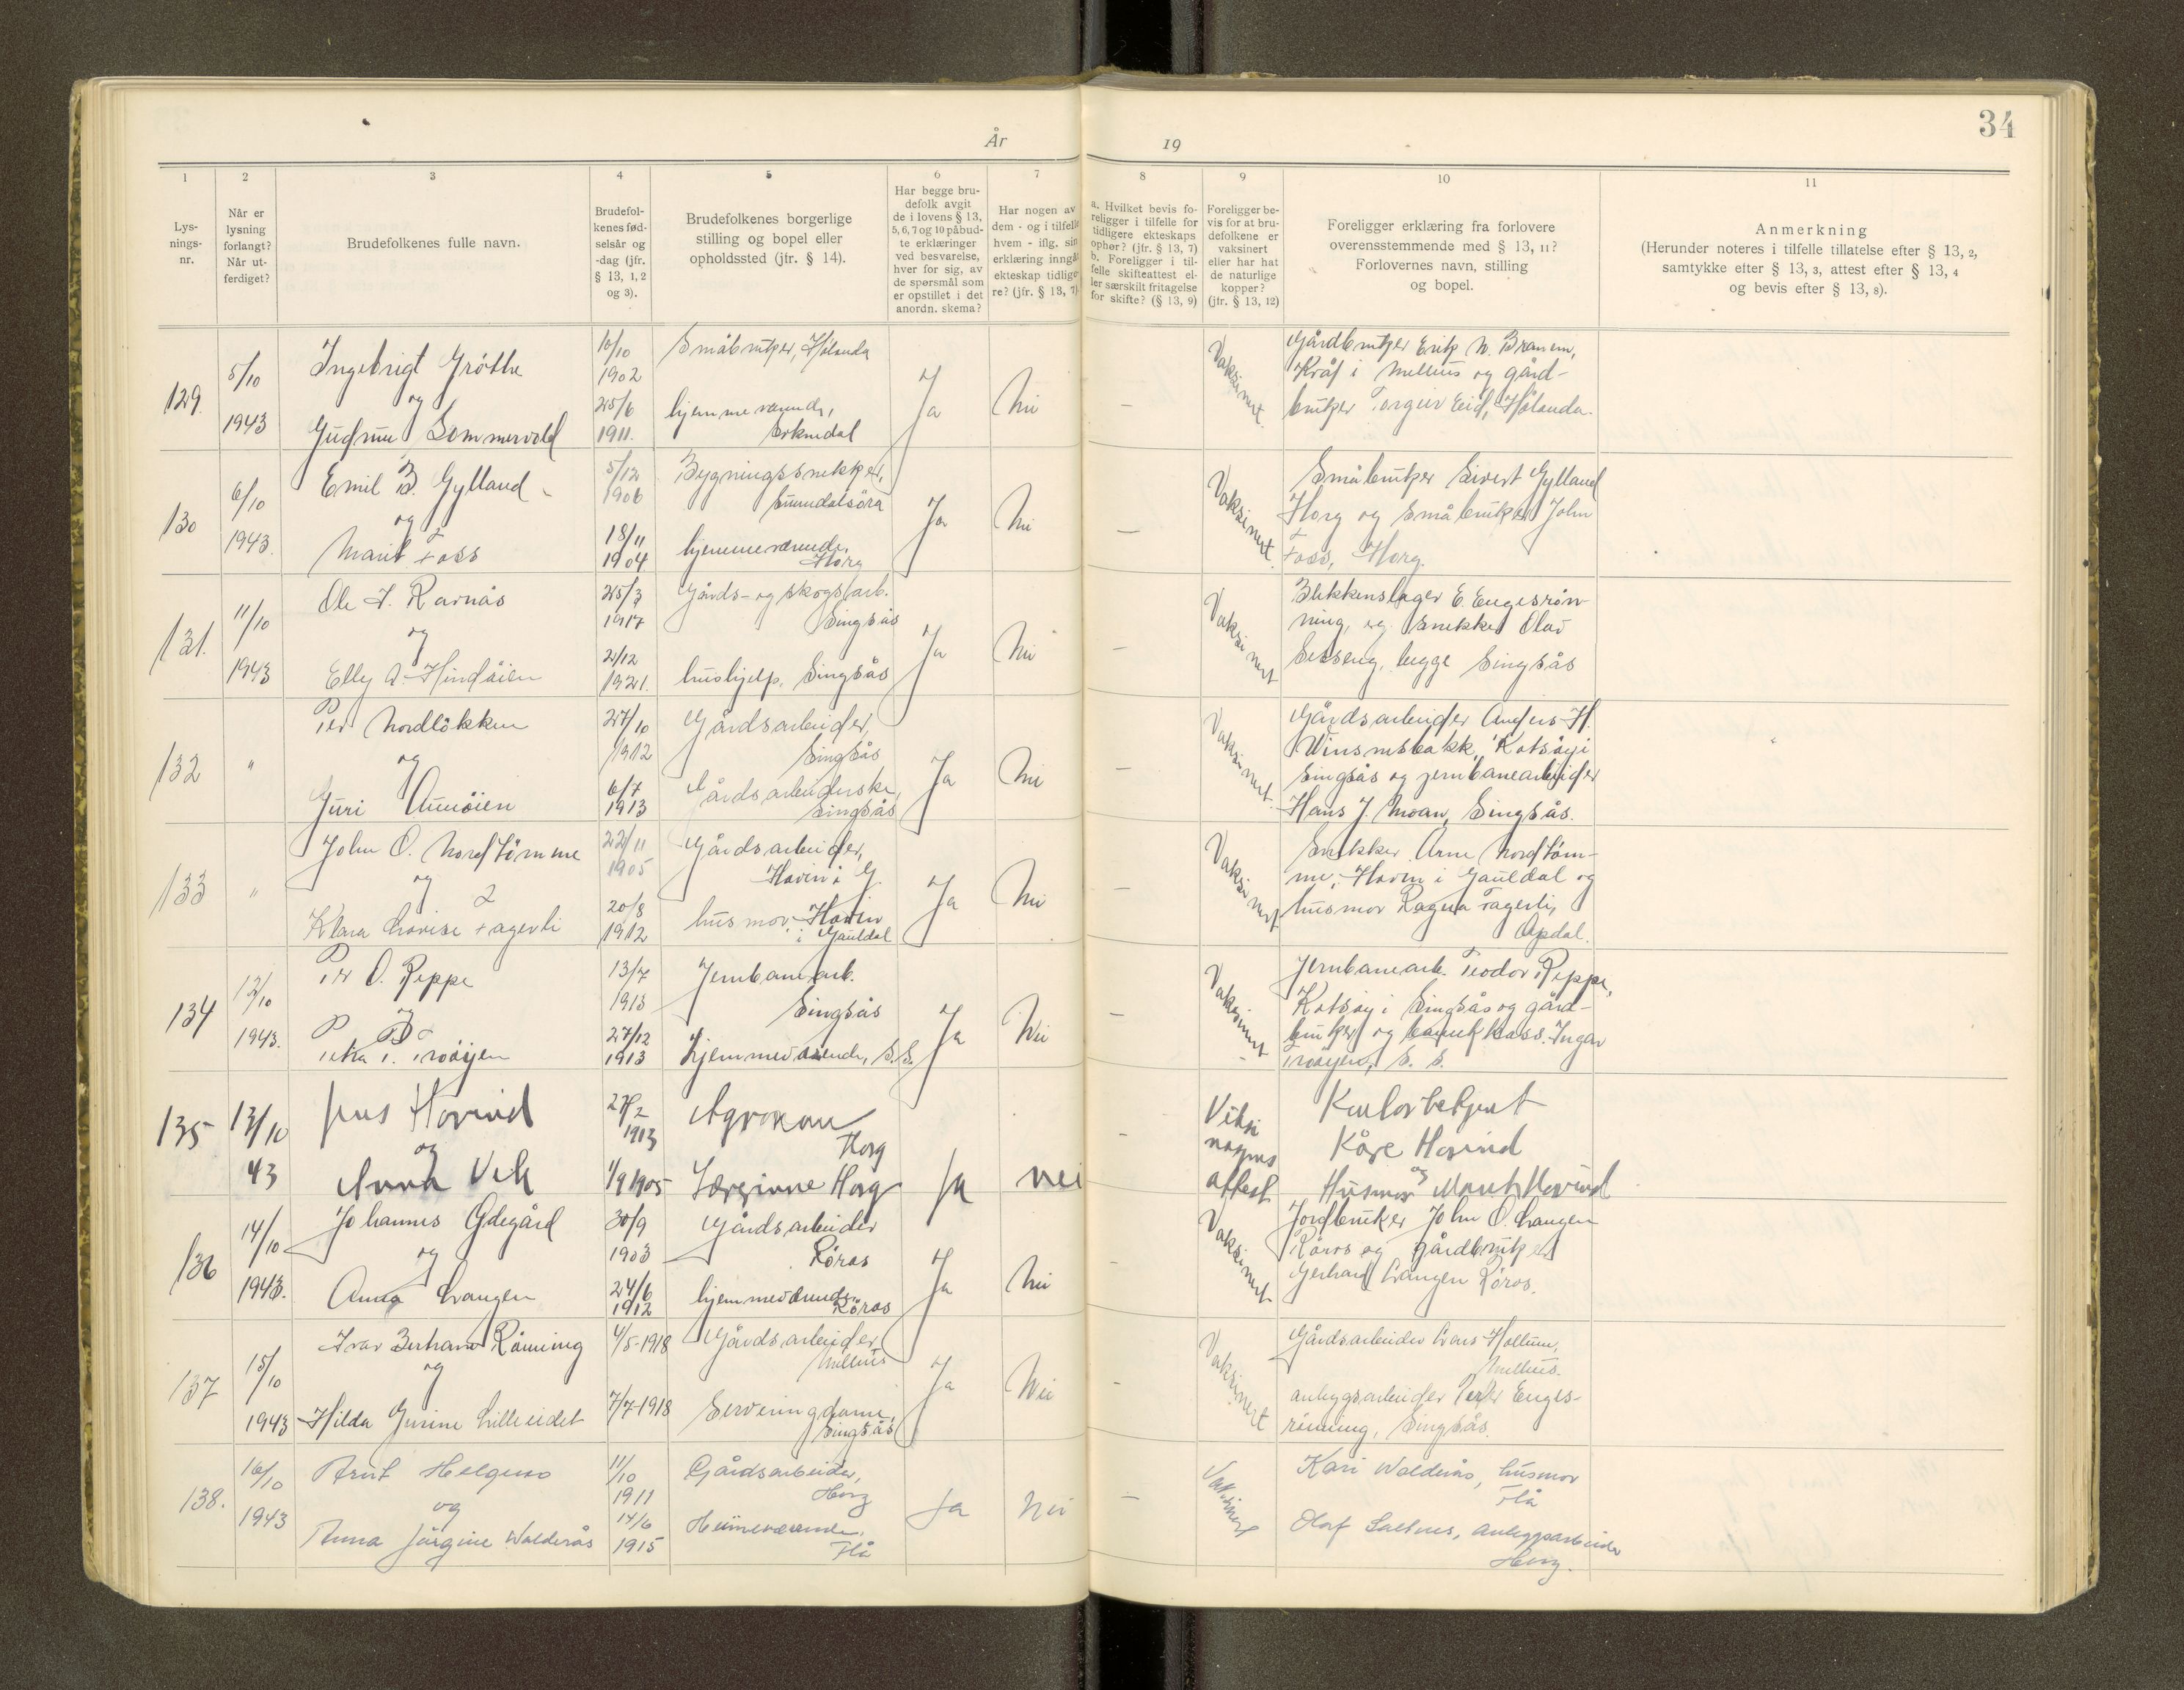 34
År
19
1
2
3
4
5
6
7
8
9
10
11
Lys-
nings-
nr.
Når er
lysning
forlangt?
Når ut-
ferdiget?
Brudefolkenes fulle navn.
Brudefol-
kenes fød-
selsår og
-dag (jfr.
§ 13, 1, 2
og 3).
Brudefolkenes borgerlige
stilling og bopel eller
opholdssted (jfr. § 14).
Har begge bru-
defolk avgit
de i lovens § 13,
5, 6, 7 og 10 påbud-
te erklæringer
ved besvarelse,
hver for sig, av
de spørsmål som
er opstillet i det
anordn. skema?
Har nogen av
dem - og i tilfelle
hvem - iflg. sin
erklæring inngåt
ekteskap tidlige-
re? (jfr. § 13, 7)
a. Hvilket bevis fo-
religger i tilfelle for
tidligere ekteskaps
ophør? (jfr. § 13, 7)
b. Foreligger i til-
felle skifteattest el-
ler særskilt fritagelse
for skifte? (§ 13, 9)
Foreligger be-
vis for at bru-
defolkene er
vaksinert
eller har hat
de naturlige
kopper?
(jfr. § 13, 12)
Foreligger erklæring fra forlovere
overensstemmende med § 13, 11?
Forlovernes navn, stilling
og bopel.
Anmerkning
(Herunder noteres i tilfelle tillatelse efter § 13, 2,
samtykke efter § 13, 3, attest efter § 13, 4
og bevis efter § 13, 8).
129.
5/10
1943
Ingebrigt Gröthe
og
Gudrun Sommervold
10/10
1902
25/6
1911.
Småbruker, Hölonda
hjemmeværende,
Soknedal
Ja
Nei
—
Vaksinert.
Gårdbruker Erik N. Branem,
Kråf i Melhus og gård-
bruker Torgeir Eid, Hölonda.
130
6/10
1943.
Emil B. Gylland
og
Marit Foss
5/12
1906
18/11
1904
Bygningssnekker,
Sunndalsöra
hjemmeværende,
Horg
Ja
Nei
—
Vaksinert.
Småbruker Sivert Gylland
Horg og Småbruker John
Foss, Horg.
131.
11/10
1943
Ole J. Ramås
og
Elly A. Hindöien
25/3
1917
21/12
1921.
Gårds- og skogsarb.
Singsås
hushjelp, Singsås
Ja
Nei
—
Vaksinert
Blikkenslager E. Engesrön-
ning, og snekker Olav
Setseng, begge Singsås
132
"
Per Nordlökken
og
Guri Aunöien
27/10
1912
6/7
1913
Gårdsarbeider,
Singsås
Gårdsarbeiderske,
Singsås
Ja
Nei
—
Vaksinert.
Gårdsarbeider Anders H.
Winsnesbakk, Kotsöy i
Singsås og jernbanearbeider
Hans J. Moan, Singsås.
133
"
John O. Nordtömme
og
Klara Lovise Fagerli
22/11
1905
20/8
1912
Gårdsarbeider,
Hovin i G.
husmor, Hovin
i Gauldal
Ja
Nei
—
Vaksinert
Snekker Arne Nordtöm-
me, Hovin i Gauldal og
husmor Ragna Fagerli,
Opdal.
134
12/10
1943.
Per O. Reppe
og
Petra T. Troöyen
13/7
1913
27/12
1913
Jernbanearb.
Singsås
hjemmeværende, S.S.
Ja
Nei
—
Vaksinert
Jernbanearb. Teodor Reppe,
Kotsöy i Singsås og gård-
bruker og bankkass. Ingar
Troöyen, S. S.
135
13/10
43
Jens Hovind
og
Anna Vek
27/2
1913
1/9 1905
Agronom
Horg
Lærerinne Horg
Ja
nei
—
attest
Kontorbetjent
Kåre Hovind
og
Husmor Marit Hovind
136
14/10
1943.
Johannes Ödegård
og
Anna Langen
30/9
1903
24/6
1912
Gårdsarbeider
Röros
hjemmeværende,
Röros
Ja
Nei
—
Vaksinert
Jordbruker John O. Langen
Röros og gårdbruker
Gerhard Langen Röros.
137
15/10
1943
Ivar Bernhard Rönning
og
Hilda Gurine Lilleeidet
4/5-1918
7/7-1918
Gårdsarbeider,
Melhus
Serveringsdame,
Singsås
Ja
Nei
—
Vaksinert
Gårdsarbeider Lars Hollum,
Melhus.
anleggsarbeider Peder Enges-
rönning, Singsås.
138.
16/10
1943
Arnt Helgemo
og
Anna Jörgine Walderås
11/10
1911
14/6
1915
Gårdsarbeider,
Horg
Heimeværende,
Flå
Ja
Nei
—
Vaksinert
Kari Walderås, husmor
Flå
Olaf Solthus, Anleggsarbeider
Horg.